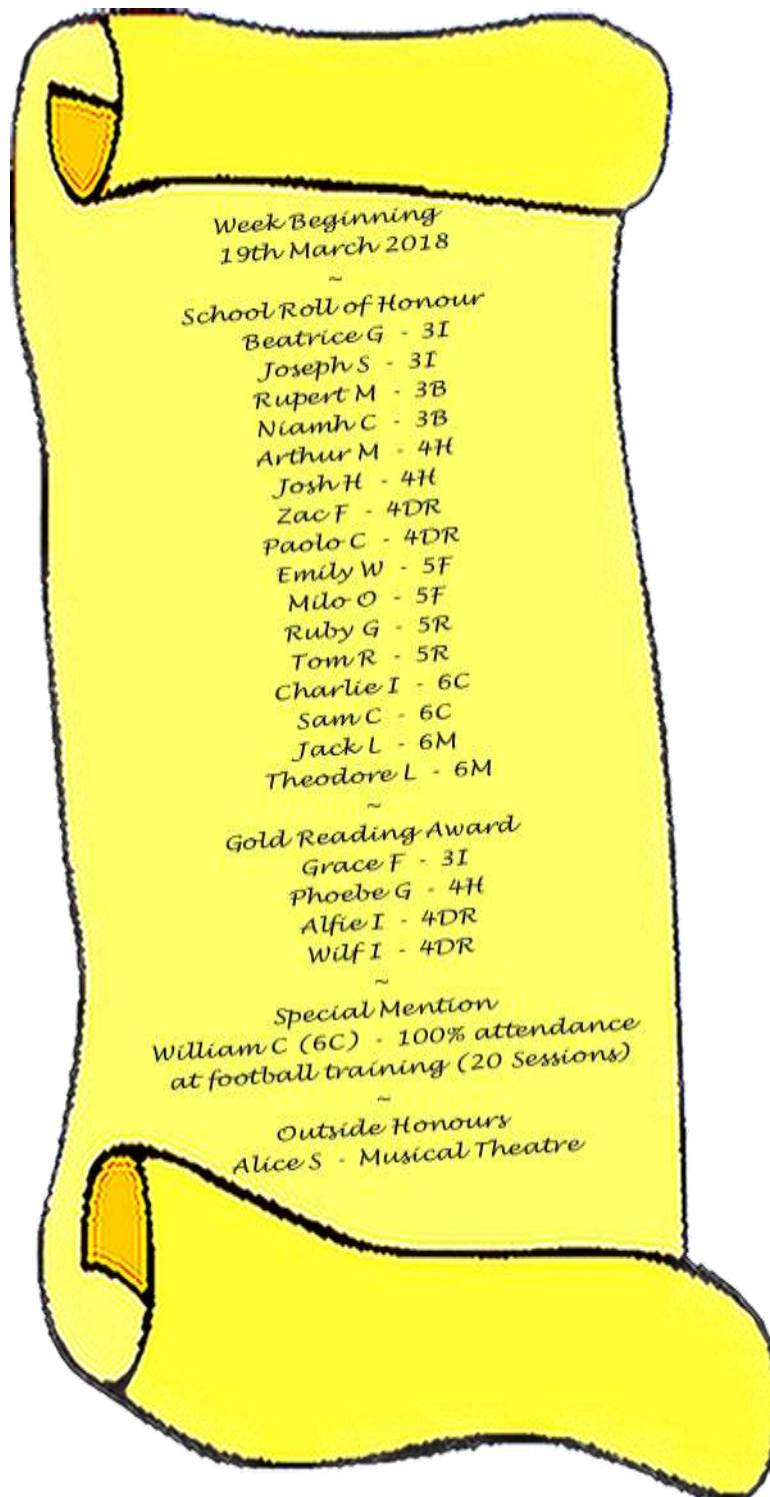 Week Beginning
19th March 2018
~
School Roll of Honour
Beatrice G - 3I
Joseph S - 3I
Rupert M - 3B
Niamh C - 3B
Arthur M - 4H
Josh H - 4H
Zac F - 4DR
Paolo C - 4DR
Emily W - 5F
Milo O - 5F
Ruby G - 5R
Tom R - 5R
Charlie I - 6C
Sam C - 6C
Jack L - 6M
Theodore L - 6M
~
Gold Reading Award
Grace F - 3I
Phoebe G - 4H
Alfie I - 4DR
Wilf I - 4DR
~
Special Mention
William C (6C) - 100% attendance
at football training (20 Sessions)
~
Outside Honours
Alice S - Musical Theatre